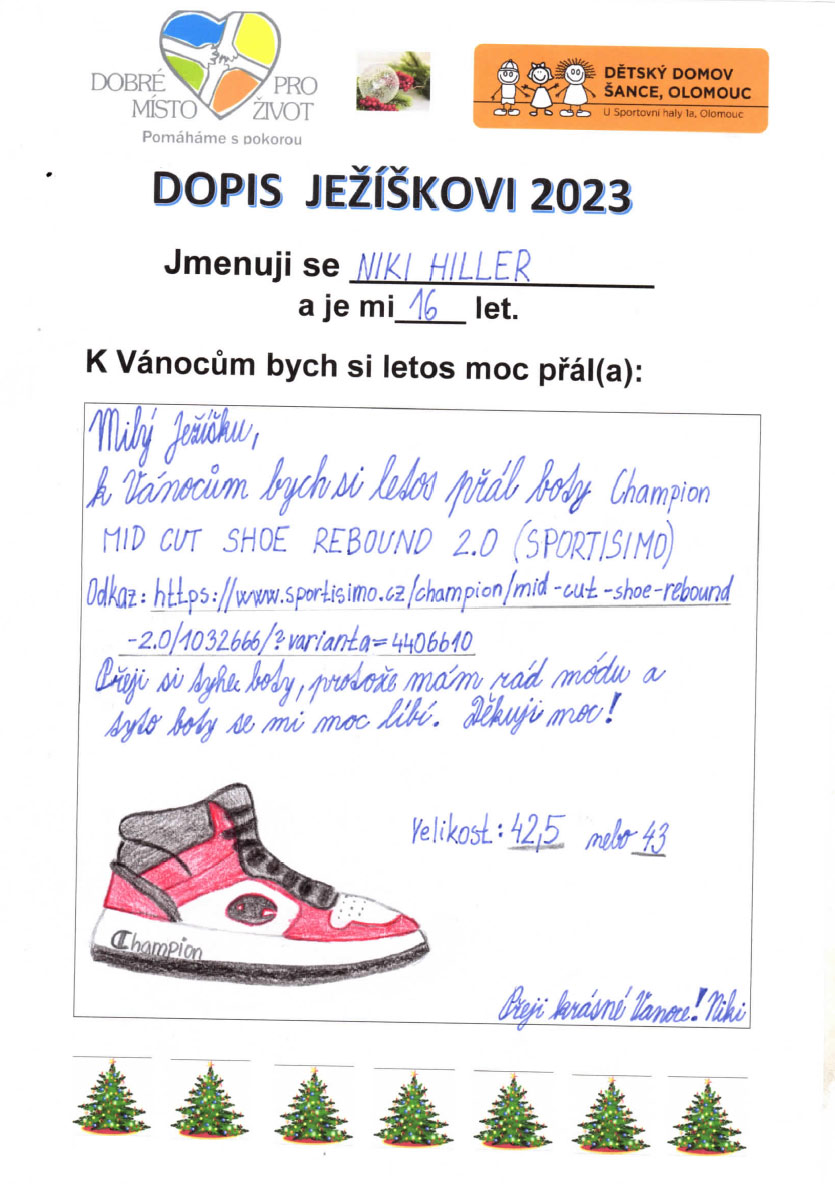 DOBRÉ PRO
MÍSTO ŽIVOT
Pomáháme s pokorou
DĚTSKÝ DOMOV
ŠANCE, OLOMOUC
U Sportovní haly 1a, Olomouc
DOPIS JEŽÍŠKOVI 2023
Jmenuji se NIKI HILLER
a je mi 16 let.
K Vánocům bych si letos moc přál(a):
Milý Ježíšku,
k Vánocům bych si letos přál boty Champion
MID CUT SHOE REBOUND 2.0 (SPORTISIMO)
Odkaz: https://www.sportisimo.cz/champion/mid-cut-shoe-rebound
-2.0/1032666/?varianta=4406610
Přeji si tyhle boty, protože mám rád módu a
tyto boty se mi moc líbí. Děkuji moc!
Velikost: 42,5 nebo 43
Champion
Přeji krásné Vánoce! Niki